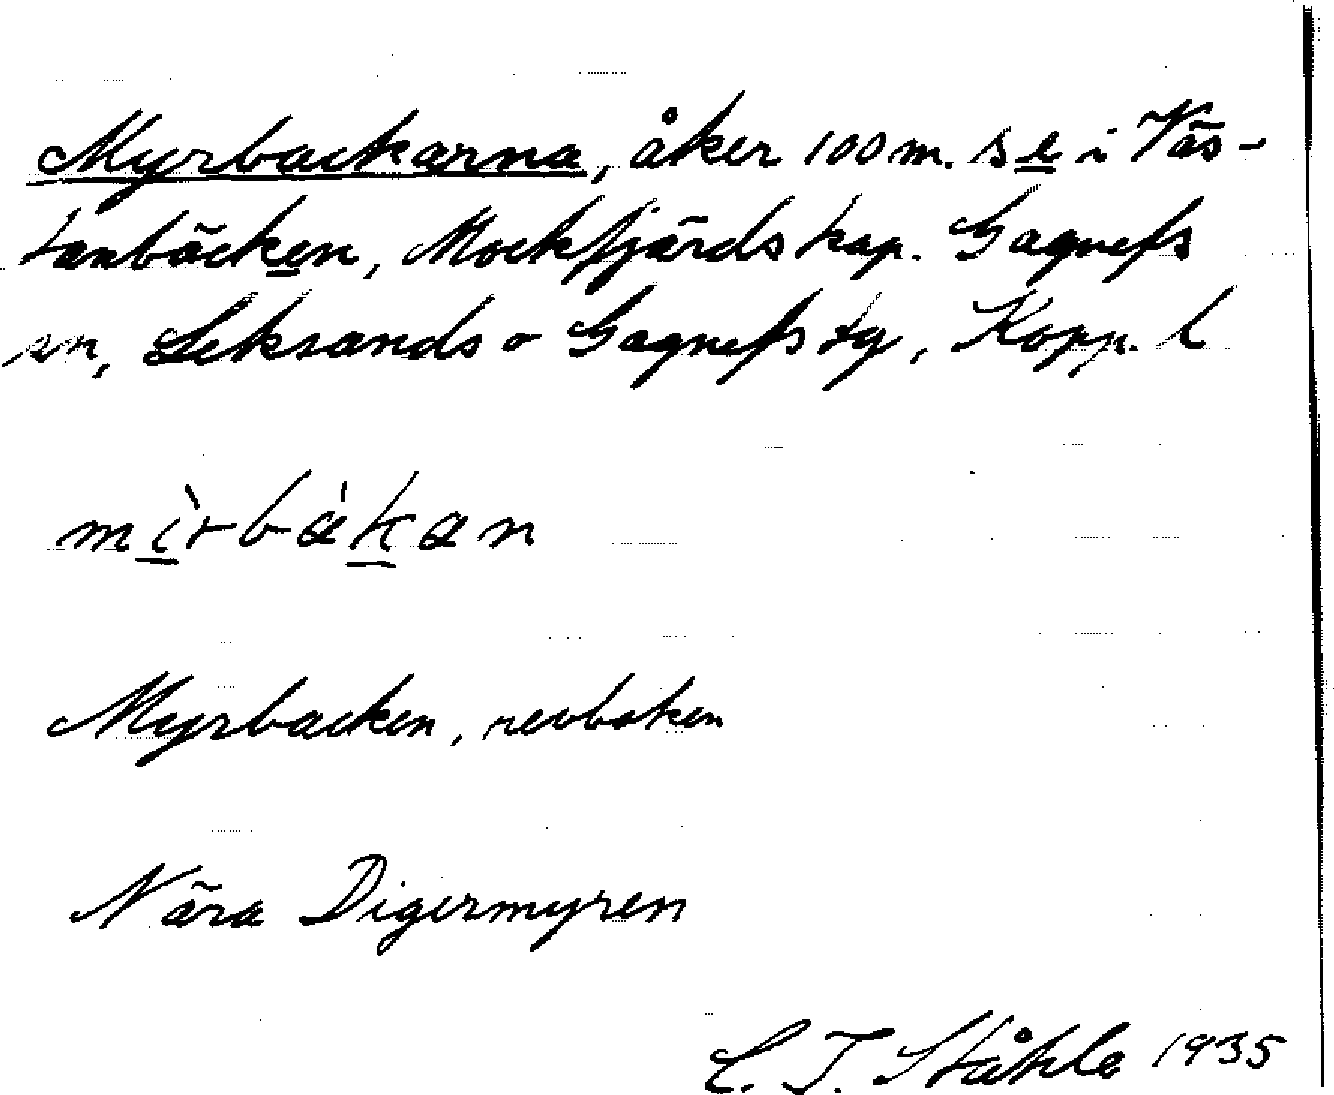 Myrbackarna, åker 100 m. s e i Väs-
tanbäcken, Mockfjärds kap. Gagnefs
sn, Leksands o Gagnefs tg, Kopp. l
mìrbàkan
Myrbacken, revboken
Nära Digermyren
C. I. Ståhle 1935